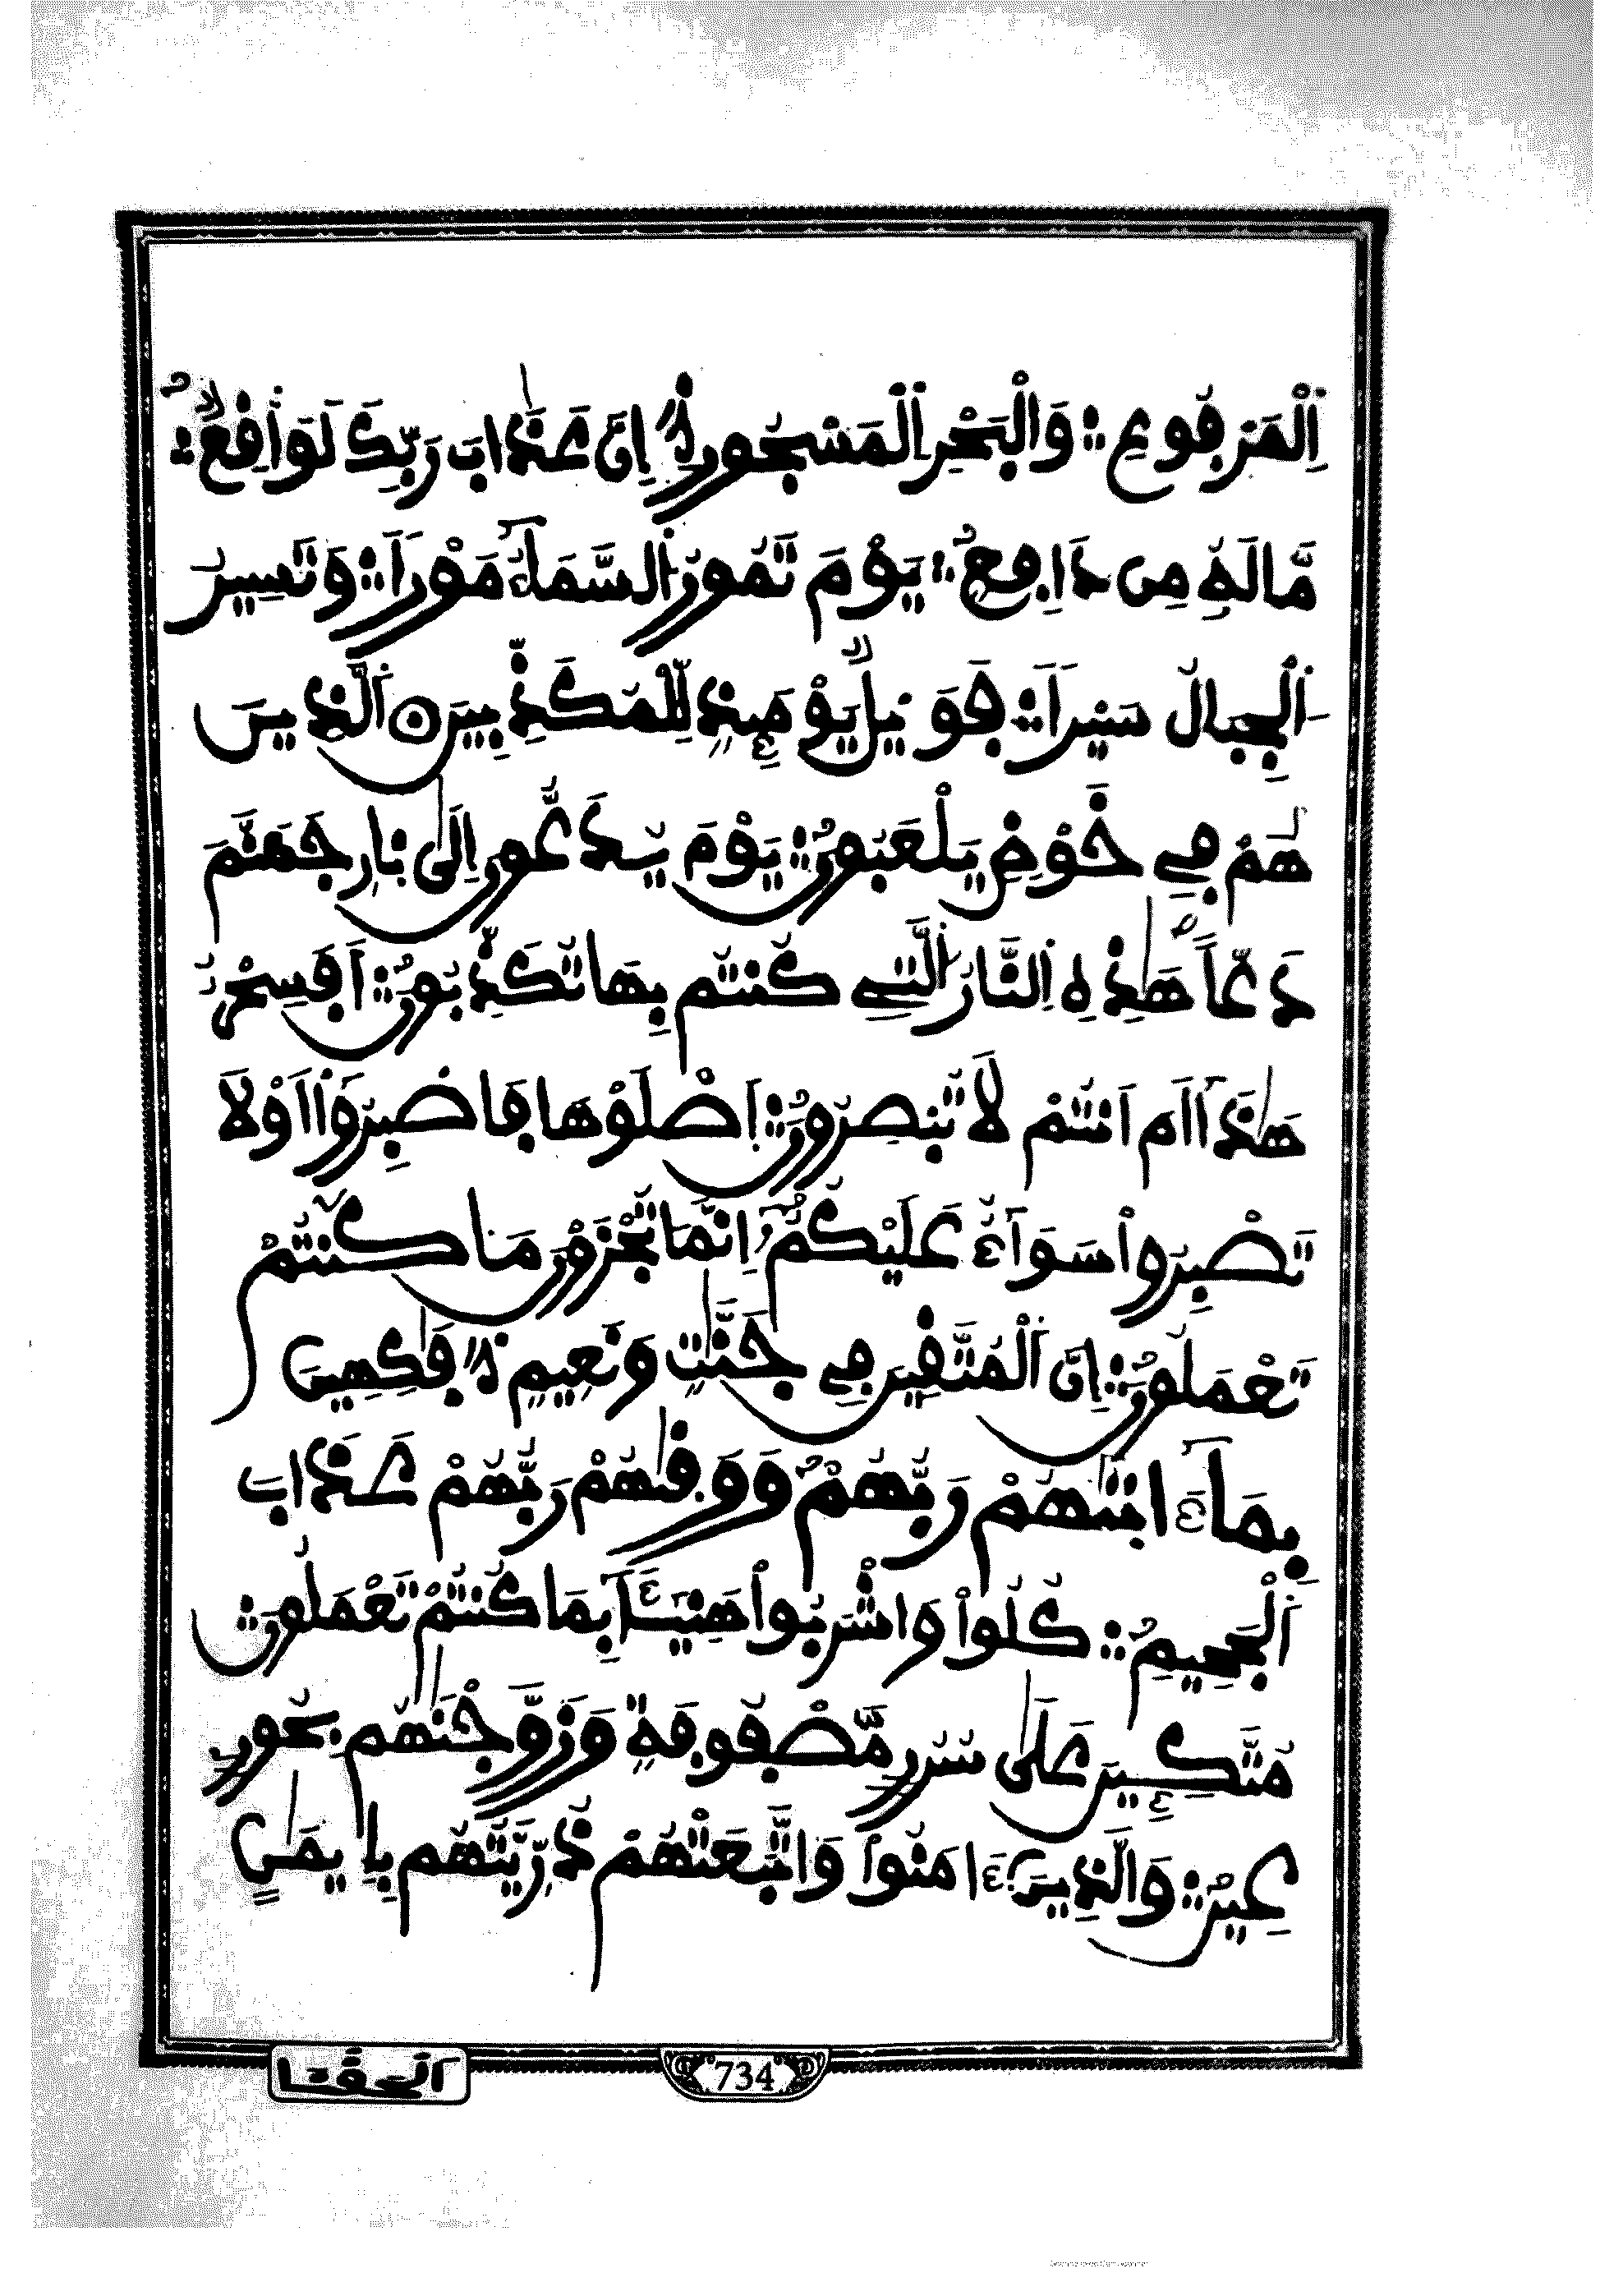 اَ۬لْمَرْفُوعِ وَالْبَحْرِ اِ۬لْمَسْجُورِ إِنَّ عَذَٰابَ رَبِّكَ لَوَاقِعٌ
مَّا لَهُۥ مِن دَافِعٍ يَوْمَ تَمُورُ اُ۬لسَّمَآءُ مَوْراً وَتَسِيرُ
اُ۬لْجِبَالُ سَيْراً فَوَيْلٌ يَوْمَئِذٍ لِّلْمُكَذِّبِينَ اَ۬لَّذِينَ
هُمْ فِے خَوْضٍ يَلْعَبُونَ يَوْمَ يُدَعُّونَ إِلَىٰ نَارِ جَهَنَّمَ
دَعّاً هَٰذِهِ اِ۬لنَّارُ اُ۬لتِے كُنتُم بِهَا تُكَذِّبُونَ أَفَسِحْرٌ
هَٰذَا أَمْ أَنتُمْ لَا تُبْصِرُونَ اَ۪صْلَوْهَا فَاصْبِرُوٓاْ أَوْ لَا
تَصْبِرُواْ سَوَآءٌ عَلَيْكُمُۥٓ إِنَّمَا تُجْزَوْنَ مَا كُنتُمْ
تَعْمَلُونَ إِنَّ اَ۬لْمُتَّقِينَ فِے جَنَّٰتٍ وَنَعِيمٍ فَٰكِهِينَ
بِمَآ ءَاتَىٰهُمْ رَبُّهُمْ وَوَقَىٰهُمْ رَبُّهُمْ عَذَابَ
اَ۬لْجَحِيمِ كُلُواْ وَاشْرَبُواْ هَنِيٓـٔاً بِمَا كُنتُمْ تَعْمَلُونَ
مُتَّكِـِٕينَ عَلَىٰ سُرُرٍ مَّصْفُوفَةٍ وَزَوَّجْنَٰهُم بِحُورٍ
عِينٍ وَالَّذِينَ ءَامَنُواْ وَاتَّبَعَتْهُمْ ذُرِّيَّتُهُم بِإِيمَٰنٍ
734